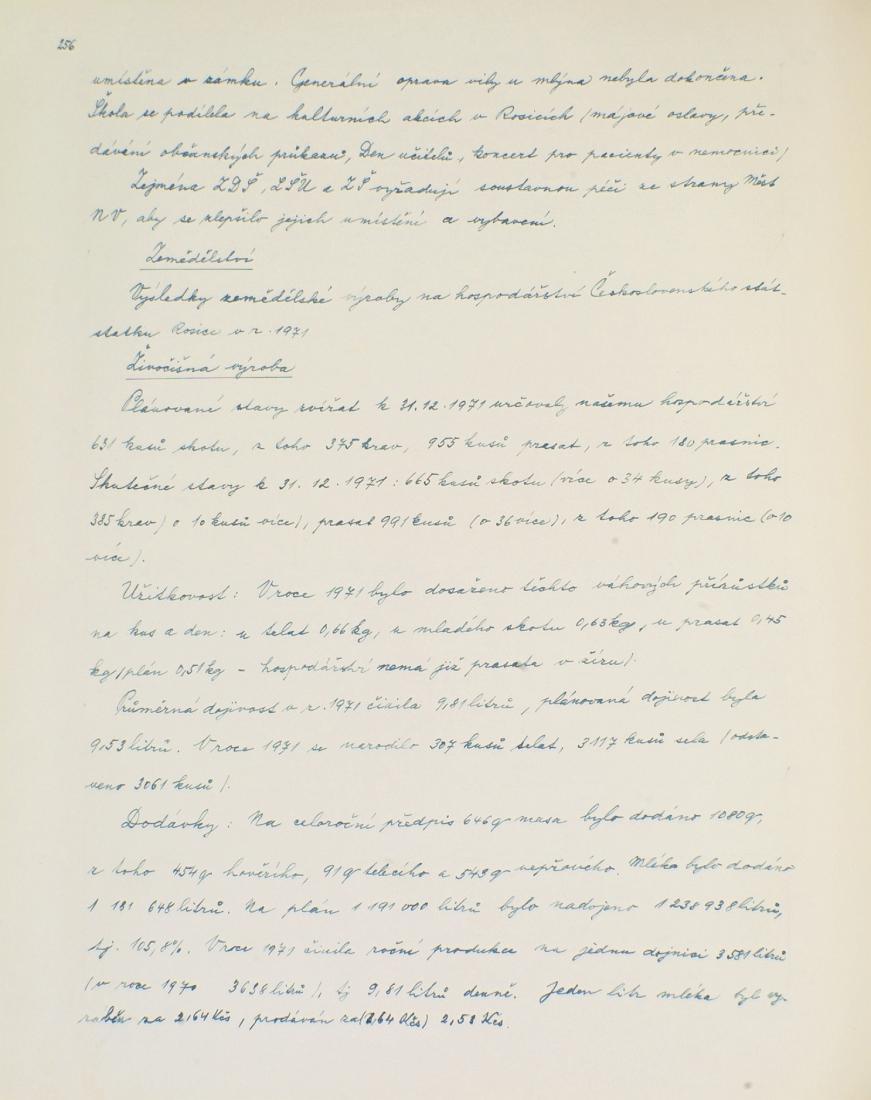 256
umístěna v zámku. Generální oprava vily u mlýna nebyla dokončena.
Škola se podílela na kulturních akcích v Rosicích (májové oslavy, pře-
dávání občanských průkazů, Den učitelů, koncert pro pacienty v nemocnici)
Zejména ZDŠ, LŠU a ZŠ vyžadují soustavnou péči ze strany Měst
NV, aby se zlepšilo jejich umístění a vybavení.
Zemědělství
Výsledky zemědělské výroby na hospodářství Československého stát-
statku Rosice v r. 1971
Živočišná výroba
Plánované stavy zvířat k 31.12.1971 určovaly našemu hospodářství
631 kusů skotu, z toho 375 krav, 955 kusů prasat, z toho 180 prasnic.
Skutečné stavy k 31. 12. 1971: 665 kusů skotu (více o 34 kusy), z toho
385 krav) o 10 kusů více), prasat 991 kusů (o 36 více), z toho 190 prasnic (o 10
více).
Užitkovost: V roce 1971 bylo dosaženo těchto váhových přírůstků
na kus a den: u telat 0,66 kg, u mladého skotu 0,63 kg, u prasat 0,45
kg (plán 0,51 kg - hospodářství nemá již prasata v žíru).
Průměrná dojivost v r. 1971 činila 9,81 litrů, plánovaná dojivost byla
9,53 litrů. V roce 1971 se narodilo 307 kusů telat, 3117 kusů sela (odsta-
veno 3061 kusů).
Dodávky: Na celoroční předpis 646 q masa bylo dodáno 1080 q,
z toho 454 q hovězího, 91 q telecího a 543 q vepřového. Mléka bylo dodáno
1 181 648 litrů. Na plán 1 191 000 litrů bylo nadojeno 1 238 938 litrů,
tj. 105,8%. V roce 1971 činila roční produkce na jednu dojnici 3 581 litrů
(v roce 1970 3638 litrů), tj 9,81 litrů denně. Jeden litr mléka byl vy-
ráběn za 2,64 Kčs, prodáván za (2,64 Kčs) 2,53 Kčs.